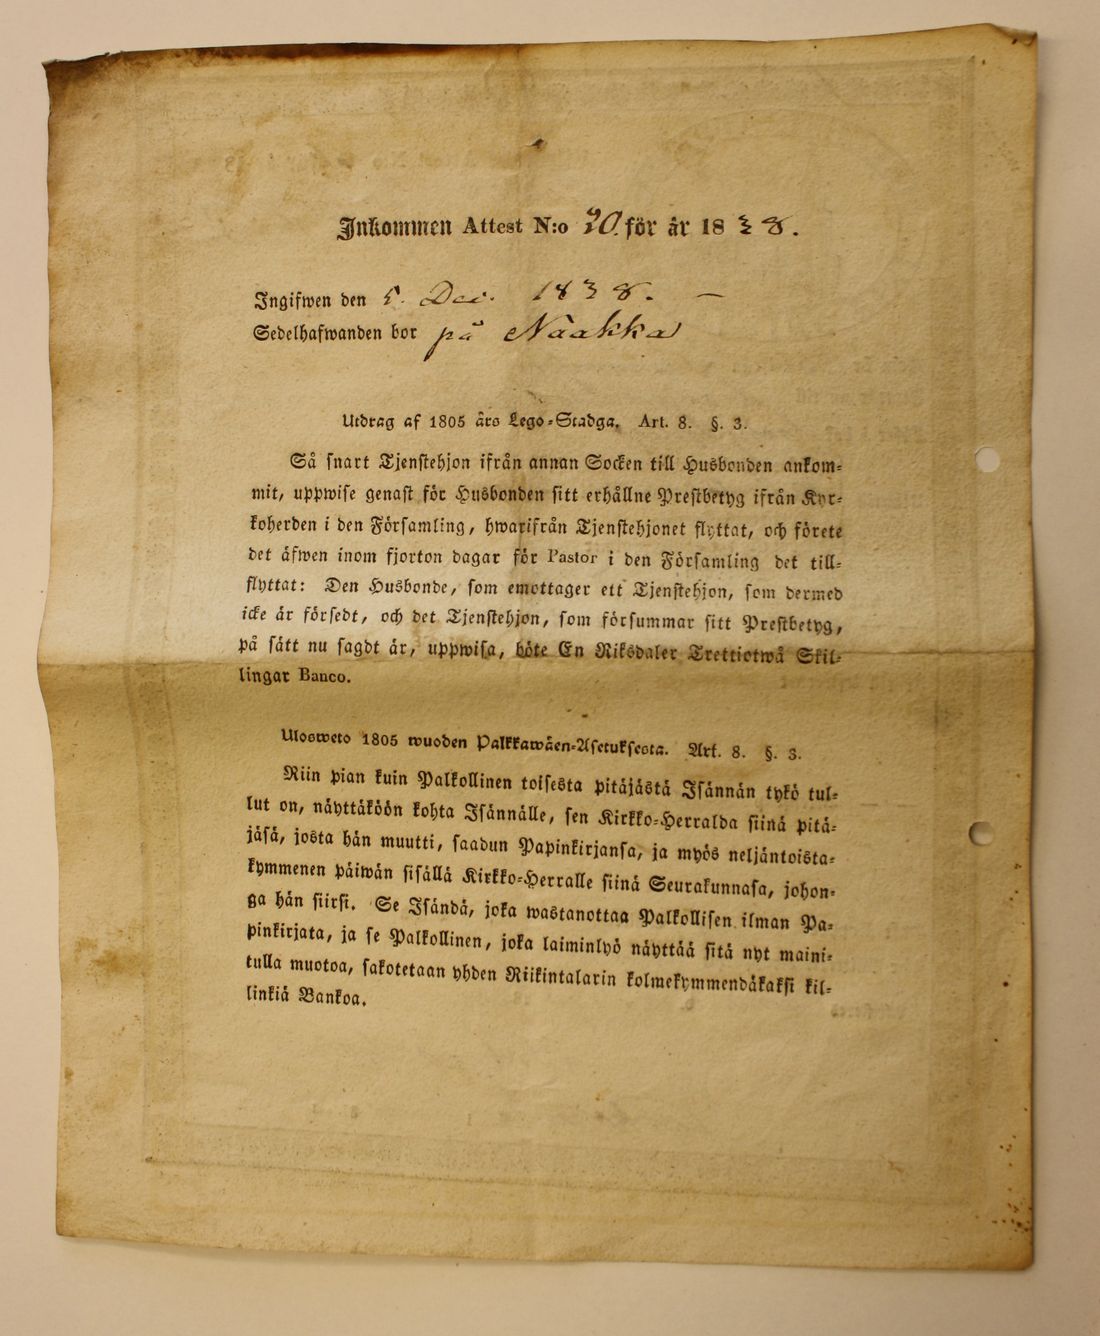 Inkommen Attest N:o 70. för år 1838.
Ingifwen den 5. Dec. 1838. —
Sedelhafwanden bor på Naakka
Utdrag af 1805 års Lego-Stadga. Art. 8. §. 3.
Så snart Tjenstehjon ifrån annan Socken till Husbonden ankom-
mit, uppwise genast för Husbonden sitt erhållne Prestbetyg ifrån Kyr-
koherden i den Församling, hwarifrån Tjenstehjonet flyttat, och förete
det äfwen inom fjorton dagar för Pastor i den Församling det till-
flyttat: Den Husbonde, som emottager ett Tjenstehjon, som dermed
icke är försedt, och det Tjenstehjon, som försummar sitt Prestbetyg,
på sätt nu sagdt är, uppwisa, böte En Riksdaler Trettiotwå Skil-
lingar Banco.
Ulosweto 1805 wuoden Palkkawäen-Asetuksesta. Art. 8. §. 3.
Niin pian kuin Palkollinen toisesta pitäjästä Isännän tykö tul-
lut on, näyttäköön kohta Isännälle, sen Kirkko-Herralda siinä pitä-
jäsä, josta hän muutti, saadun Papinkirjansa, ja myös neljäntoista-
kymmenen päiwän sisällä Kirkko-Herralle siinä Seurakunnasa, johon-
ga hän siirsi. Se Isändä, joka wastanottaa Palkollisen ilman Pa-
pinkirjata, ja se Palkollinen, joka laiminlyö näyttää sitä nyt maini-
tulla muotoa, sakotetaan yhden Riikintalarin kolmekymmendäkaksi kil-
linkiä Bankoa.